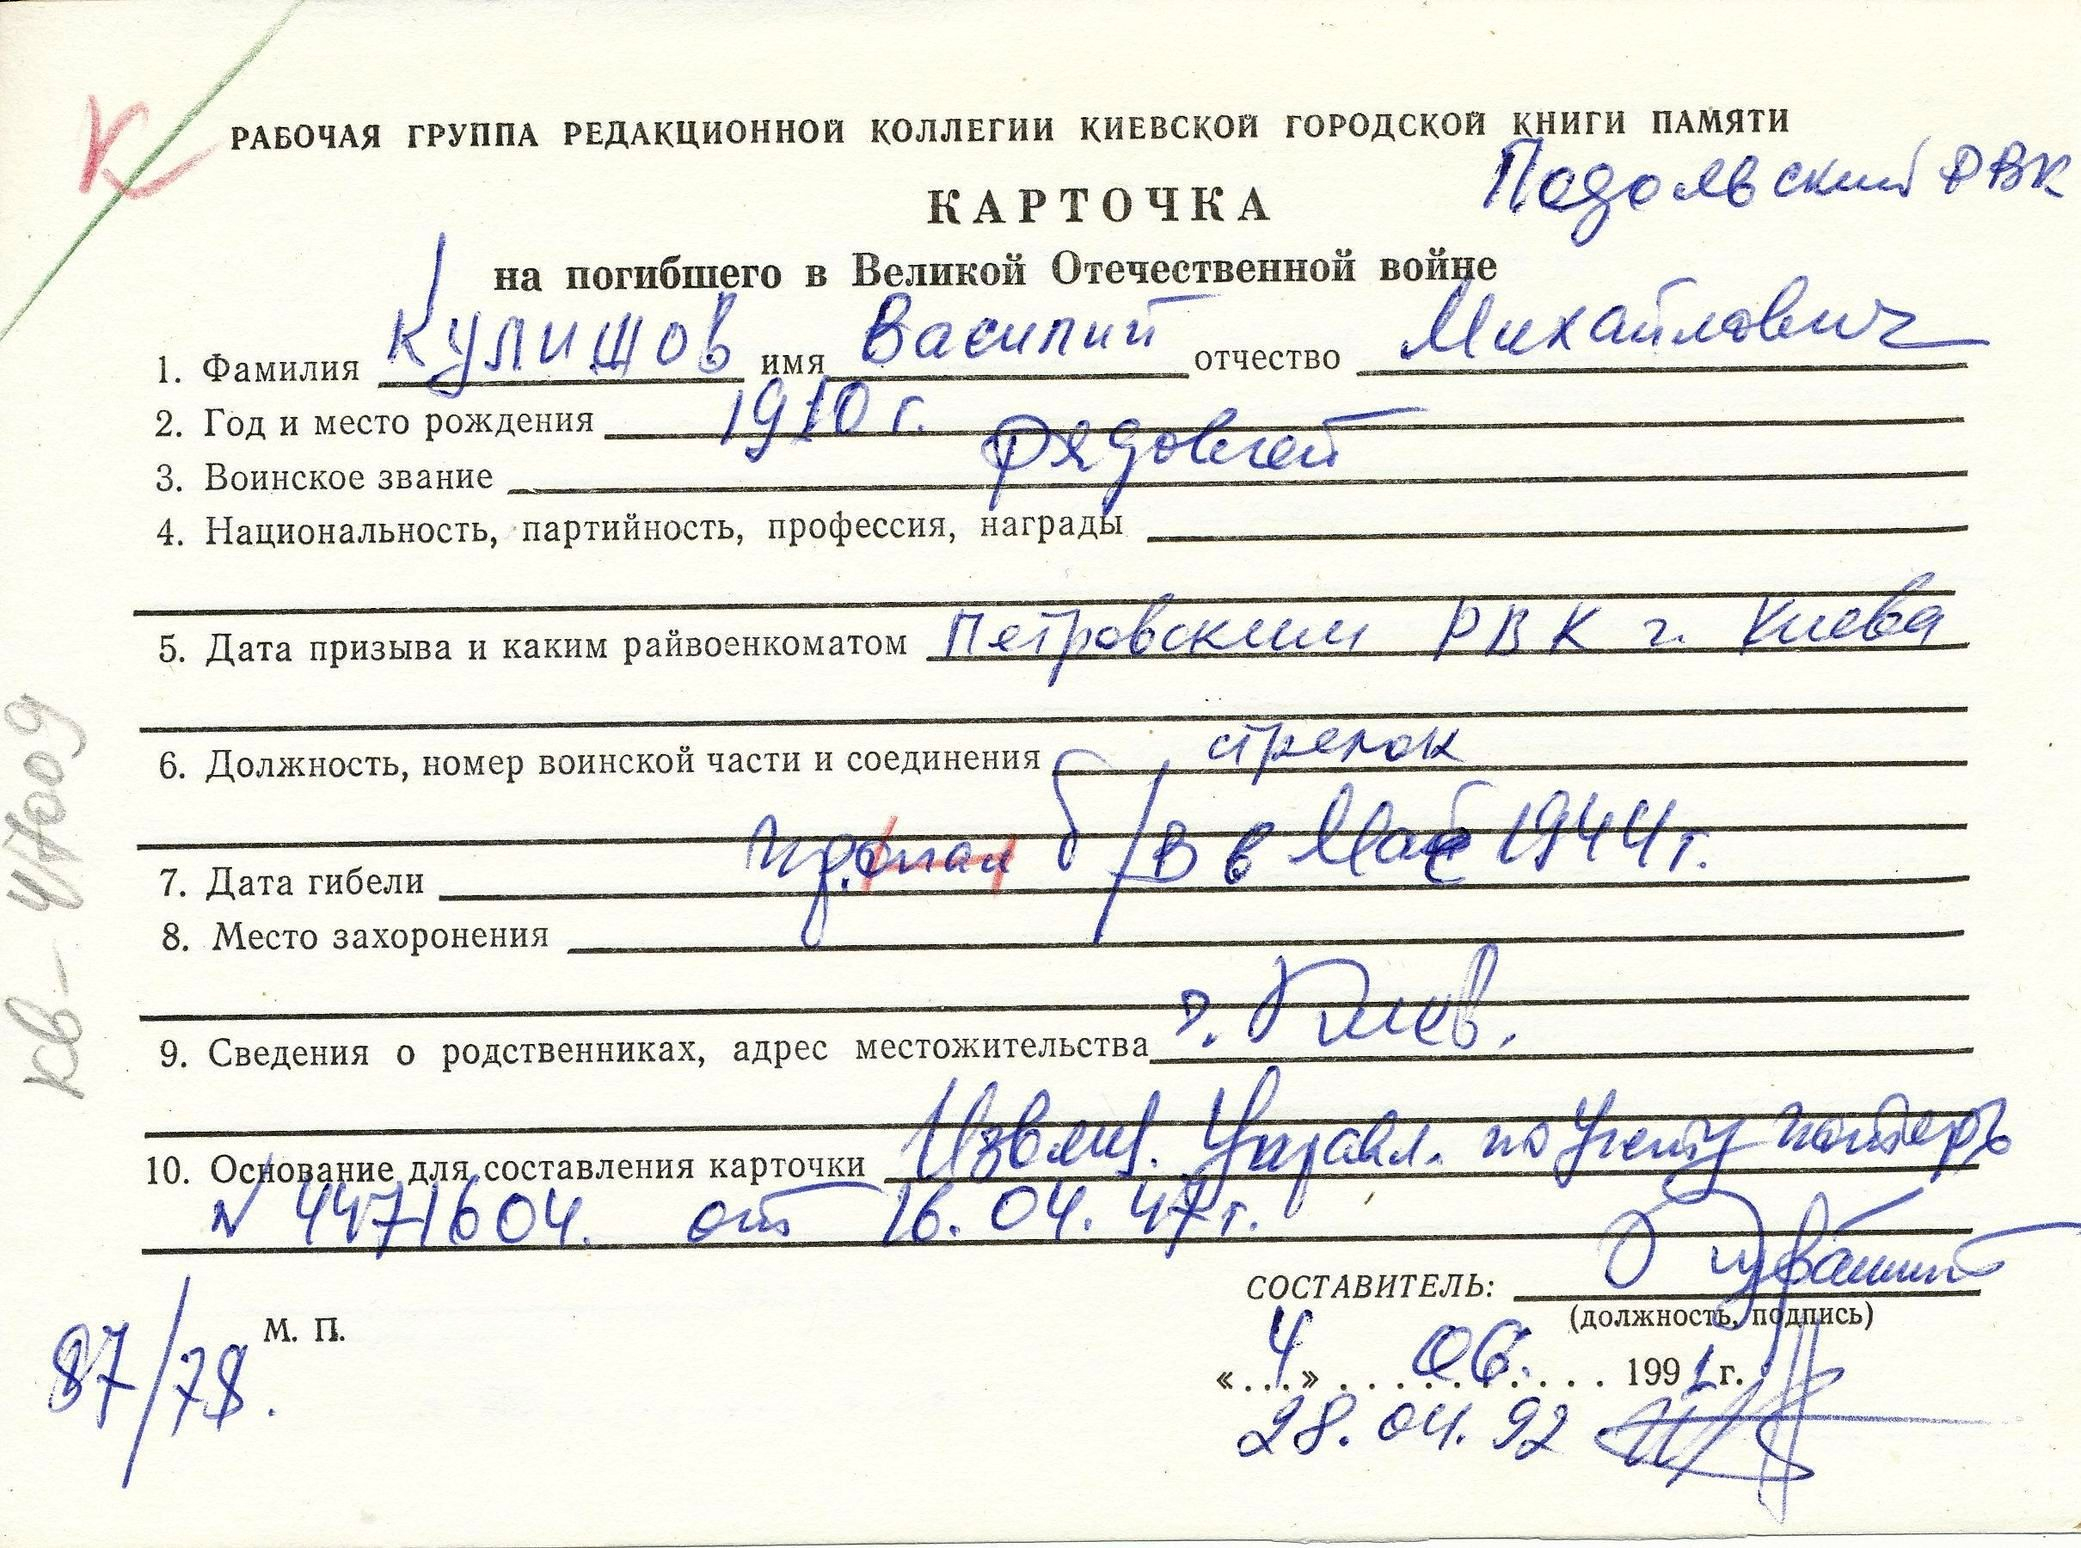 К
РАБОЧАЯ ГРУППА РЕДАКЦИОННОЙ КОЛЛЕГИИ КИЕВСКОЙ ГОРОДСКОЙ КНИГИ ПАМЯТИ
Подольский РВК
КАРТОЧКА
на погибшего в Великой Отечественной войне
1. Фамилия Кулишов имя Василий отчество Михайлович
2. Год и место рождения 1910 г.
3. Воинское звание Рядовой
4. Национальность, партийность, профессия, награды
5. Дата призыва и каким райвоенкоматом Петровским РВК г. Киева
6. Должность, номер воинской части и соединения стрелок
7. Дата гибели пропал б/в в Мае 1944 г.
8. Место захоронения
9. Сведения о родственниках, адрес местожительства г. Киев.
10. Основание для составления карточки Извещ. Управл. по учету потерь
N 4471604. от 16.04.47 г.
СОСТАВИТЕЛЬ:
(должность, подпись)
М. П.
87/78.
«4» 06. 1991 г.
28.04.92
КВ-47009